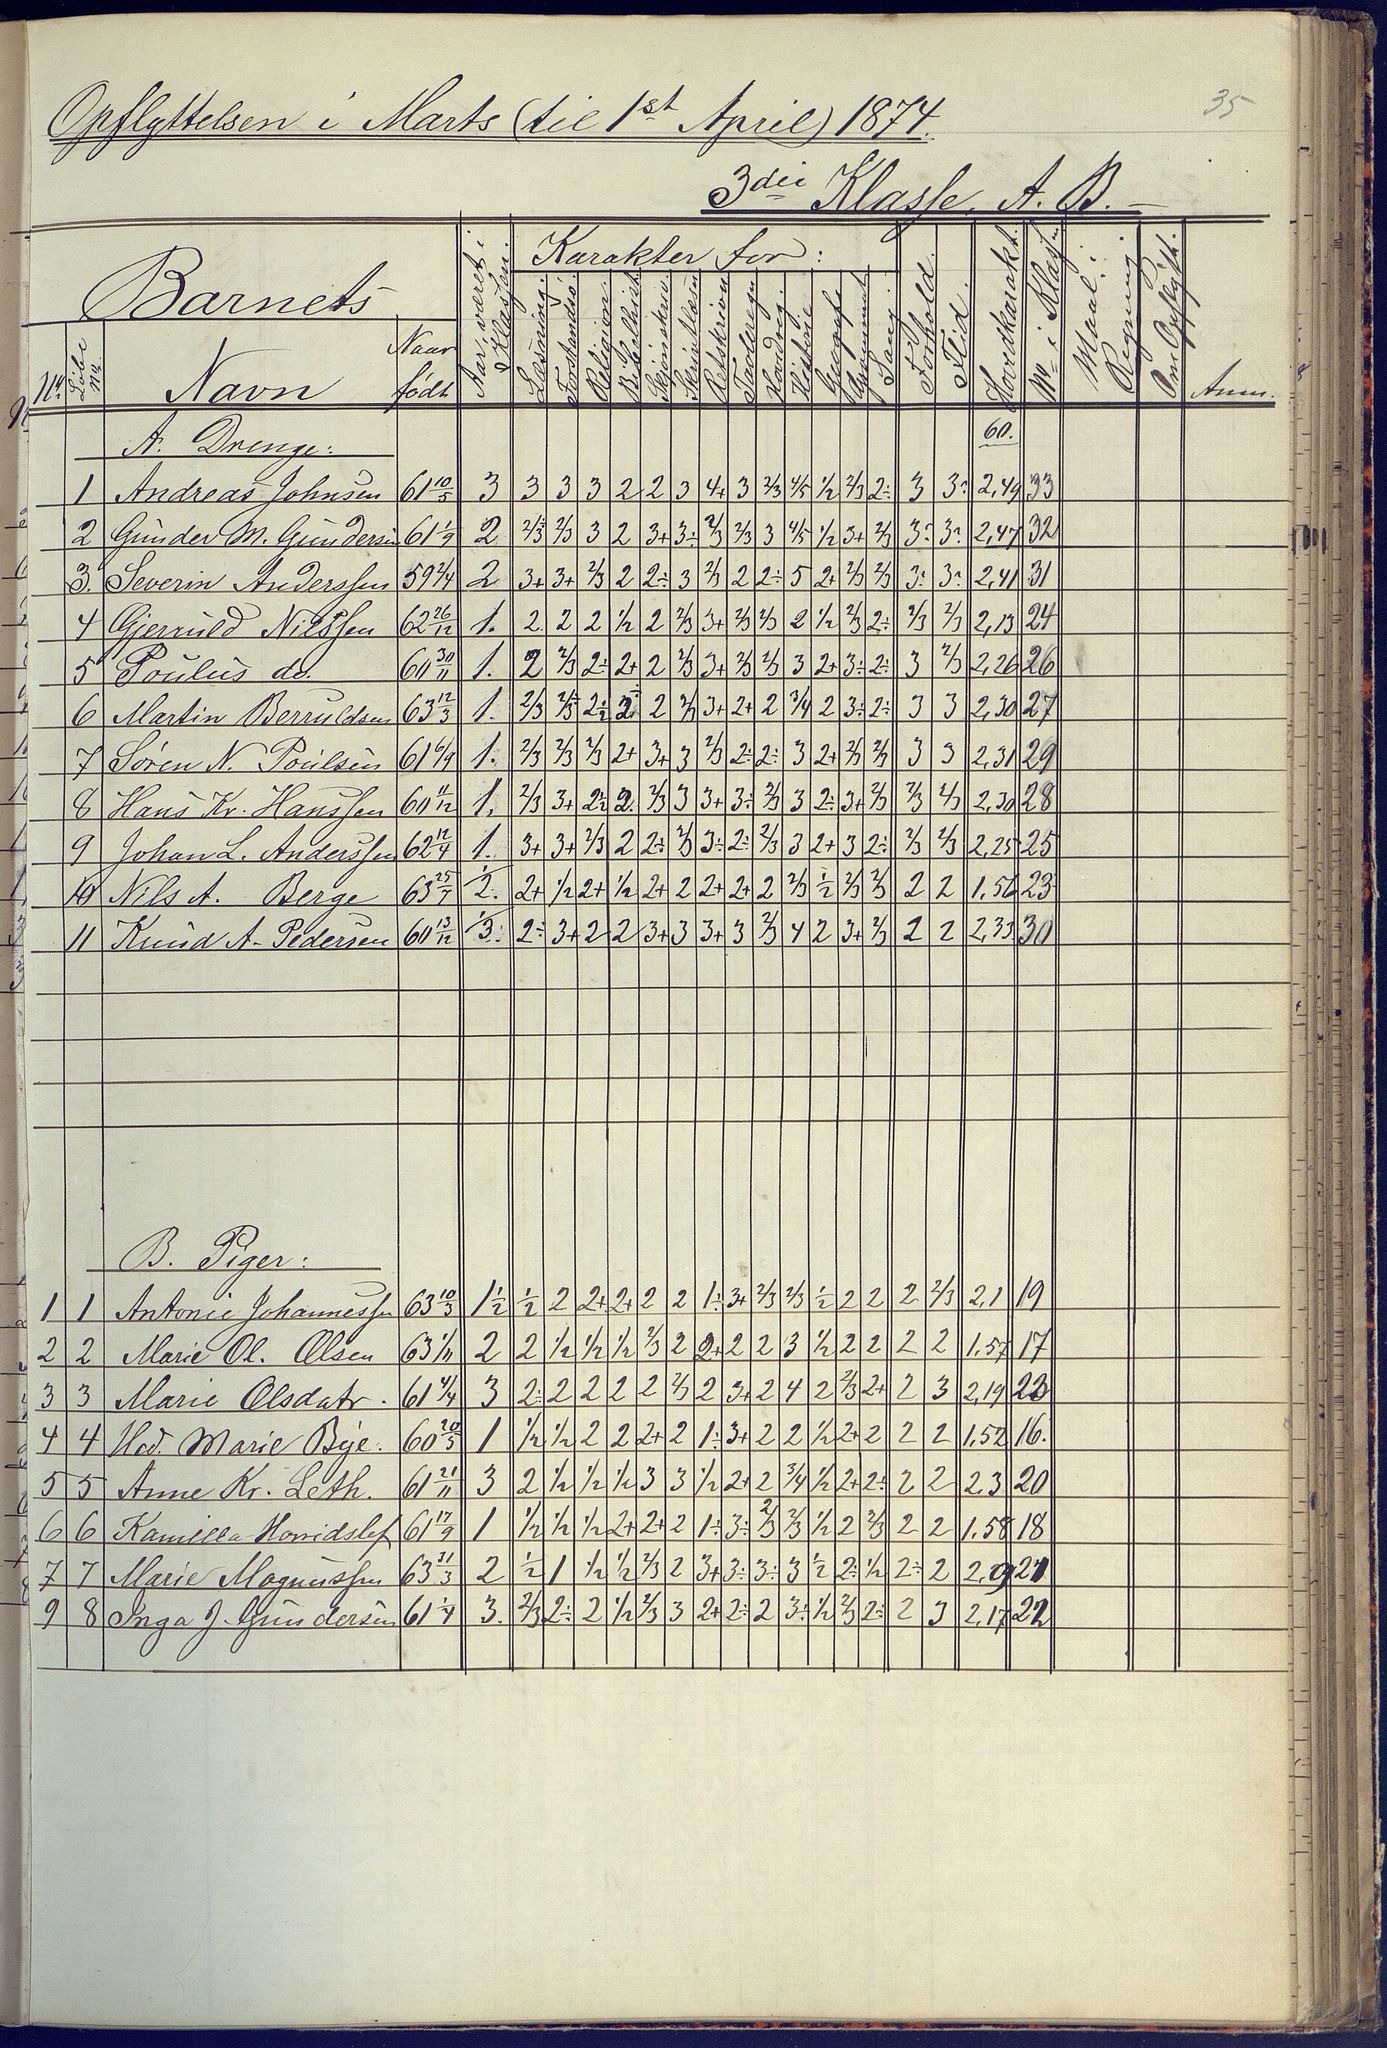 35
Opflyttelsen i Marts (til 1st April) 1874.
3die Klasse. A. B. —
Barnets
Aar, været i Klassen.
Karakter for:
Forhold.
Flid.
Hovedkarakt.
No i Klassen
Maal i Regning.
Om Opflytt.
Anm.
No.
Løbe No.
Navn
Naar født
Læsning.
Religion.
Retskrivn
Tavleregn
Hovedreg.
Historie
Geografi
Gymnast
Sang.
A. Drenge:
60.
1 Andreas Johnsen 61 10/5 3 3 3 3 2 2 3 4+ 3 2/3 4/5 1/2 2/3 2÷ 3 3 2,49 33
2 Gunder M. Gundersen 61 1/9 2 2/3 2/3 3 2 3+ 3÷ 2/3 2/3 3 4/5 1/2 3+ 2/3 3 3 2,47 32
3. Severin Anderssen 59 2/4 2 3+ 3+ 2/3 2 2÷ 3 2/3 2 2÷ 5 2+ 2/3 2/3 3 3 2,41 31
4 Gjerruld Nilssen 62 26/12 1. 2 2 2 1/2 2 2/3 3+ 2/3 2/3 2 1/2 2/3 2÷ 2/3 2/3 2,13 24
5 Poulus do. 60 30/11 1. 2 2/3 2÷ 2+ 2 2/3 3+ 2/3 2/3 3 2+ 3÷ 2÷ 3 2/3 2,26 26
6 Martin Berruldsen 63 12/3 1. 2/3 2/3 2÷ 2÷ 2 2/3 3+ 2+ 2 3/4 2 3÷ 2÷ 3 3 2,30 27
7 Søren N. Poulsen 61 6/9 1. 2/3 2/3 2/3 2+ 3+ 3 2/3 2÷ 2÷ 3 2+ 2/3 2/3 3 3 2,31 29
8 Hans Kr. Hanssen 60 11/12 1. 2/3 3+ 2÷ 2. 2/3 3 3+ 3÷ 2/3 3 2÷ 3+ 2/3 2/3 2/3 2,30 28
9 Johan L. Anderssen 62 12/4 1. 3+ 3+ 2/3 2 2÷ 2/3 3÷ 2÷ 2/3 3 2+ 3 2÷ 2/3 2/3 2,25 25
10 Nils A. Berge 63 25/7 1/2. 2+ 1/2 2+ 1/2 2+ 2 2+ 2+ 2 2/3 1/2 2/3 2/3 2 2 1,56 23
11 Knud A. Pedersen 60 13/12 1/3. 2÷ 3+ 2 2 3+ 3 3+ 3 2/3 4 2 3+ 2/3 2 2 2,33 30
B. Piger:
1 1 Antonie Johannessen 63 10/3 1 1/2 1/2 2 2+ 2+ 2 2 1÷ 3+ 2/3 2/3 1/2 2 2 2 2/3 2,1 19
2 2 Marie Ol. Olsen 63 1/11 2 2 1/2 1/2 1/2 2/3 2 2+ 2 2 3 1/2 2 2 2 2 1,57 17
3 3 Marie Olsdatr. 61 4/4 3 2÷ 2 2 2 2 2/3 2 3+ 2 4 2 2/3 2+ 2 3 2,19 23
4 4 Hed. Marie Bye. 60 20/5 1 1/2 1/2 2 2 2+ 2 1÷ 3+ 2 2 1/2 2+ 2 2 2 1,52 16.
5 5 Anne Kr. Leth. 61 21/11 3 2 1/2 1/2 1/2 3 3 1/2 2+ 2 3/4 1/2 2+ 2÷ 2 2 2,3 20
6 6 Kamilla 61 17/9 1 1/2 1/2 1/2 2+ 2+ 2 1÷ 3÷ 2/3 2/3 1/2 2 2/3 2 2 1,58 18
7 7 Marie Magnussen 63 31/3 2 1/2 1 1/2 1/2 2/3 2 3+ 3÷ 3÷ 3 1/2 2÷ 1/2 2÷ 2 2,9 21
9 8 Inga J. Gundersen 61 1/4 3. 2/3 2÷ 2 1/2 2/3 3 2+ 2÷ 2 3÷ 1/2 2/3 2÷ 2 3 2,17 22